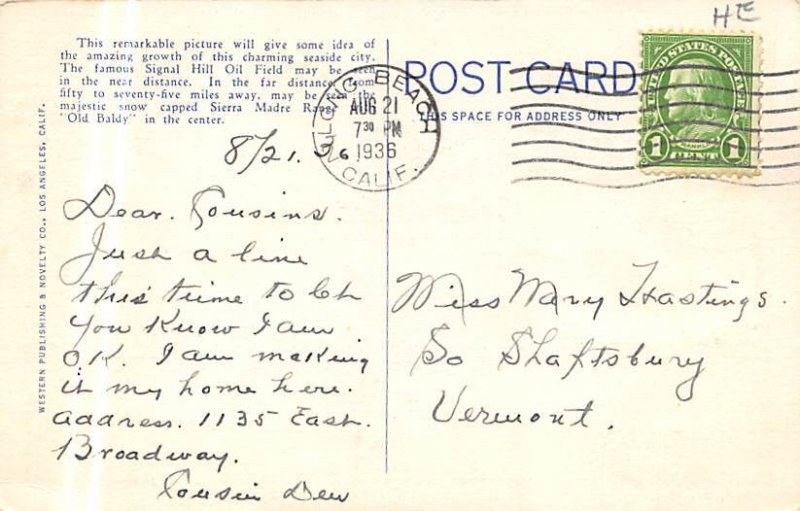 HE
This remarkable picture will give some idea of
the amazing growth of this charming seaside city.
The famous Signal Hill Oil Field may be seen
in the near distance. In the far distance, from
fifty to seventy-five miles away, may be seen the
majestic snow capped Sierra Madre Range,
"Old Baldy" in the center.
POST CARD
THIS SPACE FOR ADDRESS ONLY
LONG BEACH
AUG 21
7 30 PM
1936
CALIF.
UNITED STATES POSTAGE
1 CENT 1
WESTERN PUBLISHING & NOVELTY CO., LOS ANGELES, CALIF.
8/21. 36
Dear. Cousins.
Just a line
this time to let
you know I am
O.K. I am making
it my home here.
address. 1135 East.
Broadway.
Cousin Dew
Miss Mary Hastings.
So Shaftsbury
Vermont.